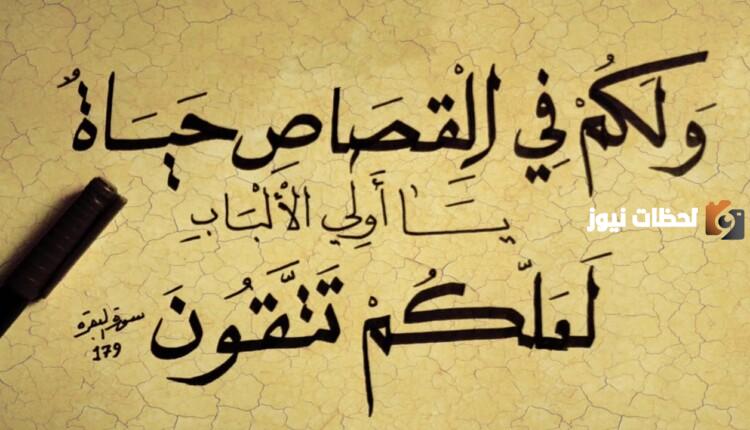 وَلَكُمْ فِي الْقِصَاصِ حَيَاةٌ
يَا أُولِي الْأَلْبَابِ
لحظات نيوز
لَعَلَّكُمْ تَتَّقُونَ
سورة البقرة
179